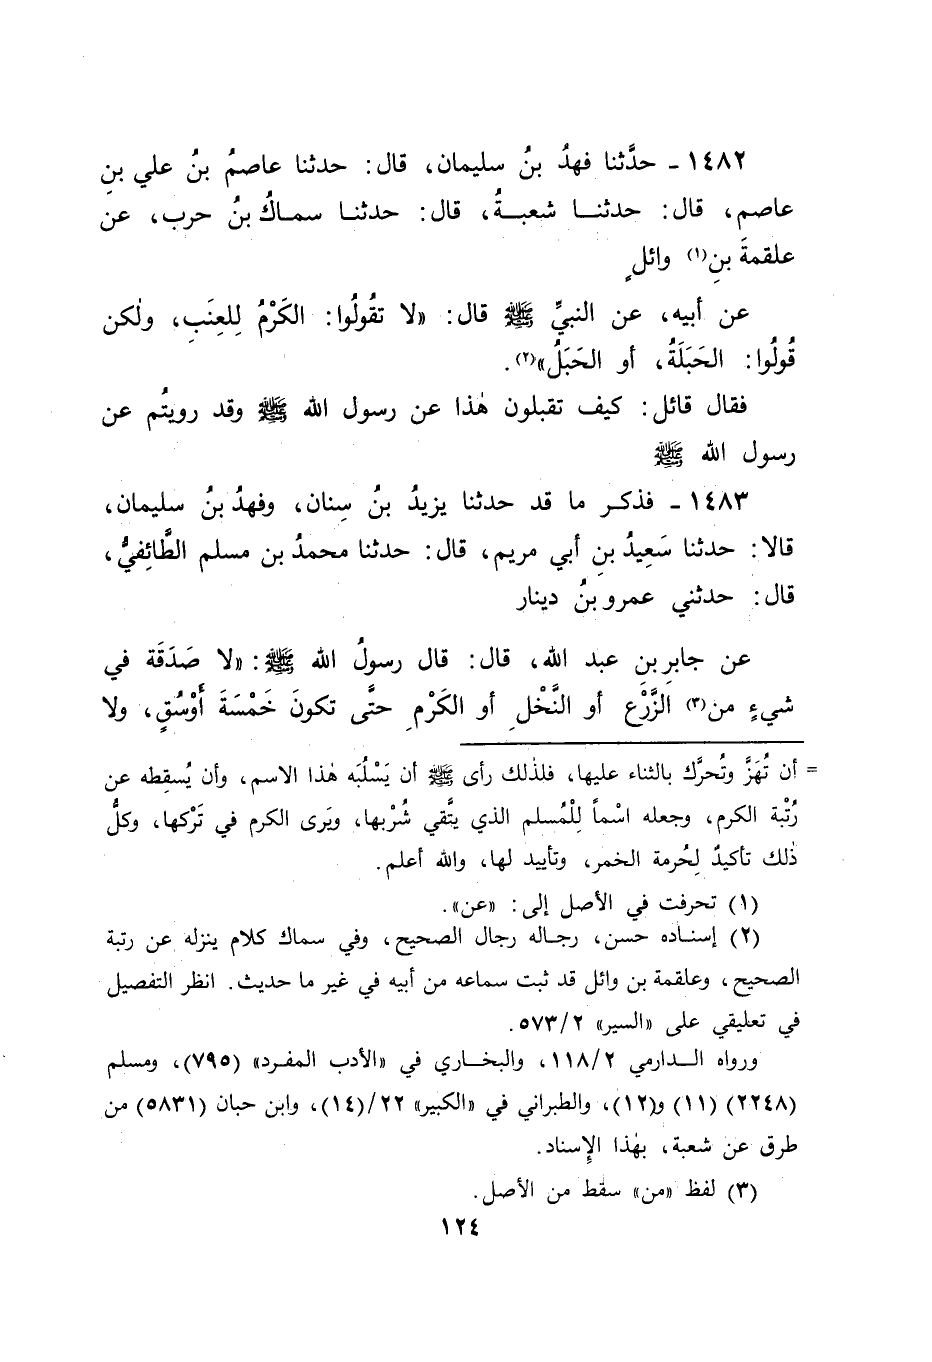 ١٤٨٢ - حدَّثنا فهدُ بنُ سليمان، قال: حدثنا عاصمُ بنُ علي بنِ
عاصم، قال: حدثنا شعبةُ، قال: حدثنا سماكُ بنُ حرب، عن
علقمةَ بنِ(١) وائلٍ
عن أبيه، عن النبيِّ ﷺ قال: «لا تقُولُوا: الكَرْمُ لِلعِنَبِ، ولٰكن
قُولُوا: الحَبَلَةُ، أو الحَبَلُ»(٢).
فقال قائل: كيف تقبلون هٰذا عن رسول الله ﷺ وقد رويتُم عن
رسول الله ﷺ
١٤٨٣ - فذكر ما قد حدثنا يزيدُ بنُ سِنان، وفهدُ بنُ سليمان،
قالا: حدثنا سَعِيدُ بنِ أبي مريم، قال: حدثنا محمدُ بن مسلم الطَّائِفيُّ،
قال: حدثني عمرو بنُ دينار
عن جابرِ بنِ عبد الله، قال: قال رسولُ الله ﷺ: «لا صَدَقَة في
شيءٍ من(٣) الزَّرْعِ أو النَّخْلِ أو الكَرْمِ حتَّى تكونَ خَمْسَةَ أَوْسُقٍ، ولا
= أن تُهَزَّ وتُحرَّك بالثناء عليها، فلذٰلك رأى ﷺ أن يَسْلُبَه هٰذا الاسم، وأن يُسقِطه عن
رُتْبة الكرم، وجعله اسْماً لِلْمُسلم الذي يتَّقي شُرْبها، ويَرى الكرم في تَرْكها، وكلُّ
ذٰلك تأكيدٌ لِحُرمة الخمر، وتأييد لها، والله أعلم.
(١) تحرفت في الأصل إلى: «عن».
(٢) إسناده حسن، رجاله رجال الصحيح، وفي سماك كلام ينزله عن رتبة
الصحيح، وعلقمة بن وائل قد ثبت سماعه من أبيه في غير ما حديث. انظر التفصيل
في تعليقي على «السير» ٥٧٣/٢.
ورواه الدارمي ١١٨/٢، والبخاري في «الأدب المفرد» (٧٩٥)، ومسلم
(٢٢٤٨) (١١) و(١٢)، والطبراني في «الكبير» ٢٢/(١٤)، وابن حبان (٥٨٣١) من
طرق عن شعبة، بهٰذا الإِسناد.
(٣) لفظ «من» سقط من الأصل.
١٢٤